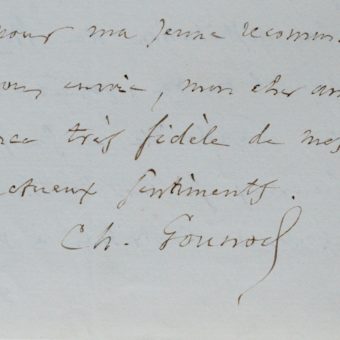 pour ma jeune recomm
vous envoie, mon cher am
très fidèle de mes
ctueux sentiments.
Ch. Gounod